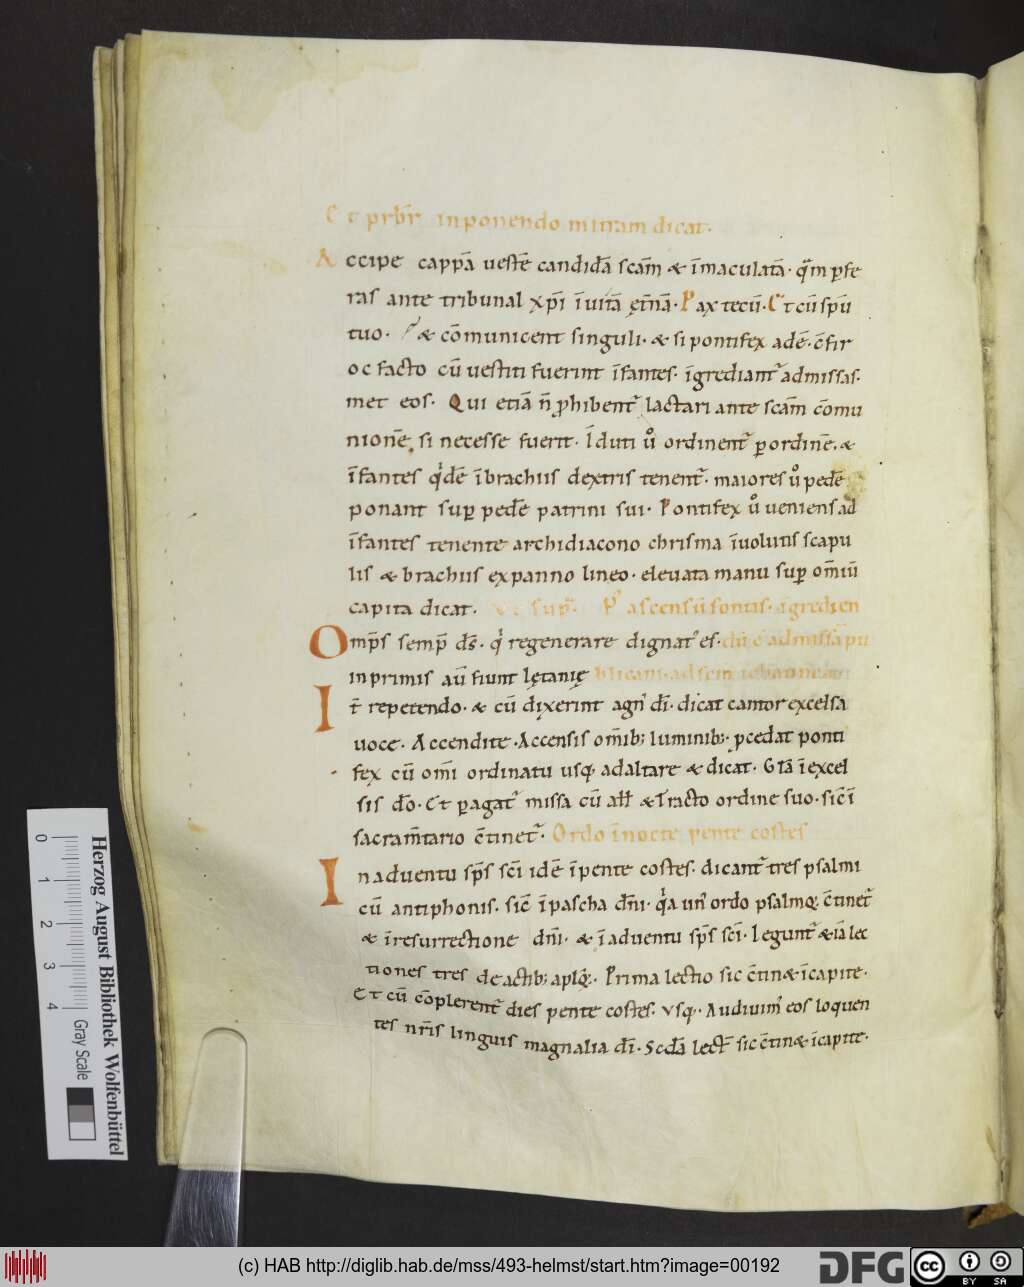 Et prbr̄ inponendo mitram dicat.
Accipe cappā uestē candidā scām & īmaculatā. quā̄m p̱fe
ras ante tribunal xp̄i īuitā ęt̄nā. Pax tecū. Et cū sp̄u
tuo. & cōmunicent singuli. & si pontifex adē. c̄fir
oc facto cū uestiti fuerint īfantes. īgrediant᷑ ad missas.
met eos. Qui etiā n̄ ꝓhibent᷑ lactari ante scām cōmu
nionē. si necesse fuerit. Iduti ū° ordinent᷑ p̱ ordinē. &
īfantes qͥdē ī brachiis dextris tenent᷑. maiores ū° pedē
ponant sup̱ pedē patrini sui. Pontifex ū° ueniens ad
īfantes tenente archidiacono chrisma īuolutis scapu
lis & brachiis ex panno lineo. eleuata manu sup̱ om̄iū
capita dicat. P᷑ ascensū fontis. īgredien
Omp̄s semp̄ ds̄. qͥ regenerare dignat᷑ es. dū ē ad missā pu
inprimis aū fiunt lętanię blicam. ad scm̄ iohannem
It̄ repetendo. & cū dixerint agn᷑ dī. dicat cantor excelsa
uoce. Accendite. Accensis om̄ib; luminib;. ꝓcedat ponti
fex cū om̄i ordinatu usq; ad altare & dicat. Gl̄a ī excel
sis dō. Et p̱agat᷑ missa cū all̄ & Tracto ordine suo. sic̄ ī
sacram̄tario c̄tinet᷑. Ordo ī nocte pente costes
In aduentu sp̄s sc̄i idē ī pente costes. dicant᷑ tres psalmi
cū antiphonis. sic̄ ī pascha dn̄i. qͣa un᷑ ordo psalmoꝝ c̄tinet᷑
& ī resurrectione dn̄i. & ī aduentu sp̄s sc̄i. Legunt᷑ & iā lec
tiones tres de actib; aplōꝝ. Prima lectio sic c̄tin& ī capite.
Et cū cōplerent᷑ dies pente costes. Vsq;. Audiuim᷑ eos loquen
tes nr̄is linguis magnalia dī. Scd̄a lect̄ sic c̄tin& ī capite.
0 1 2 3 4 Gray Scale
Herzog August Bibliothek Wolfenbüttel
(c) HAB http://diglib.hab.de/mss/493-helmst/start.htm?image=00192
DFG
cc BY SA